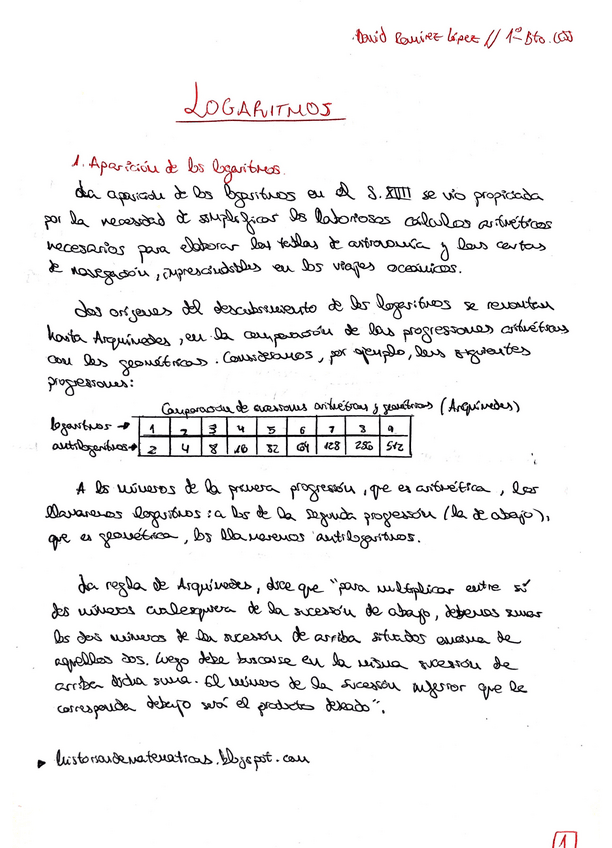 David Ramirez López // 1º Bto. CCSS
LOGARITMOS
1. Aparición de los logaritmos.
La aparición de los logaritmos en el S.XVII se vio propiciada
por la necesidad de simplificar los laboriosos cálculos aritméticos
necesarios para elaborar las tablas de astronomía y las cartas
de navegación, imprescindibles en los viajes oceánicos.
Los orígenes del descubrimiento de los logaritmos se remontan
hasta Arquímedes, en la comparación de las progresiones aritméticas
con las geométricas. Consideramos, por ejemplo, las siguientes
progresiones:
Comparación de sucesiones aritméticas y geométricas (Arquímedes)
logaritmos → 1 2 3 4 5 6 7 8 9
antilogaritmos → 2 4 8 16 32 64 128 256 512
A los números de la primera progresión, que es aritmética, los
llamaremos logaritmos: a los de la segunda progresión (la de abajo),
que es geométrica, los llamaremos antilogaritmos.
La regla de Arquímedes, dice que "para multiplicar entre sí
dos números cualesquiera de la sucesión de abajo, debemos sumar
los dos números de la sucesión de arriba situados encima de
aquellos dos. Luego debe buscarse en la misma sucesión de
arriba dicha suma. El número de la sucesión inferior que le
corresponda debajo será el producto deseado".
▸ historiandematematicas.blogspot.com
1